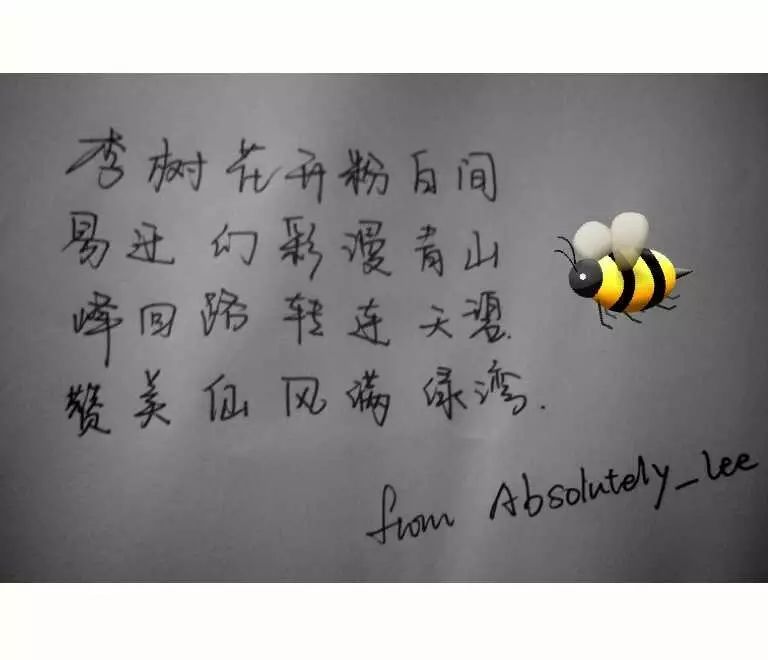 李树花开粉白间
易迁幻彩漫青山
峰回路转连天
赞美仙风满绿湾.
from Absolutely_Lee